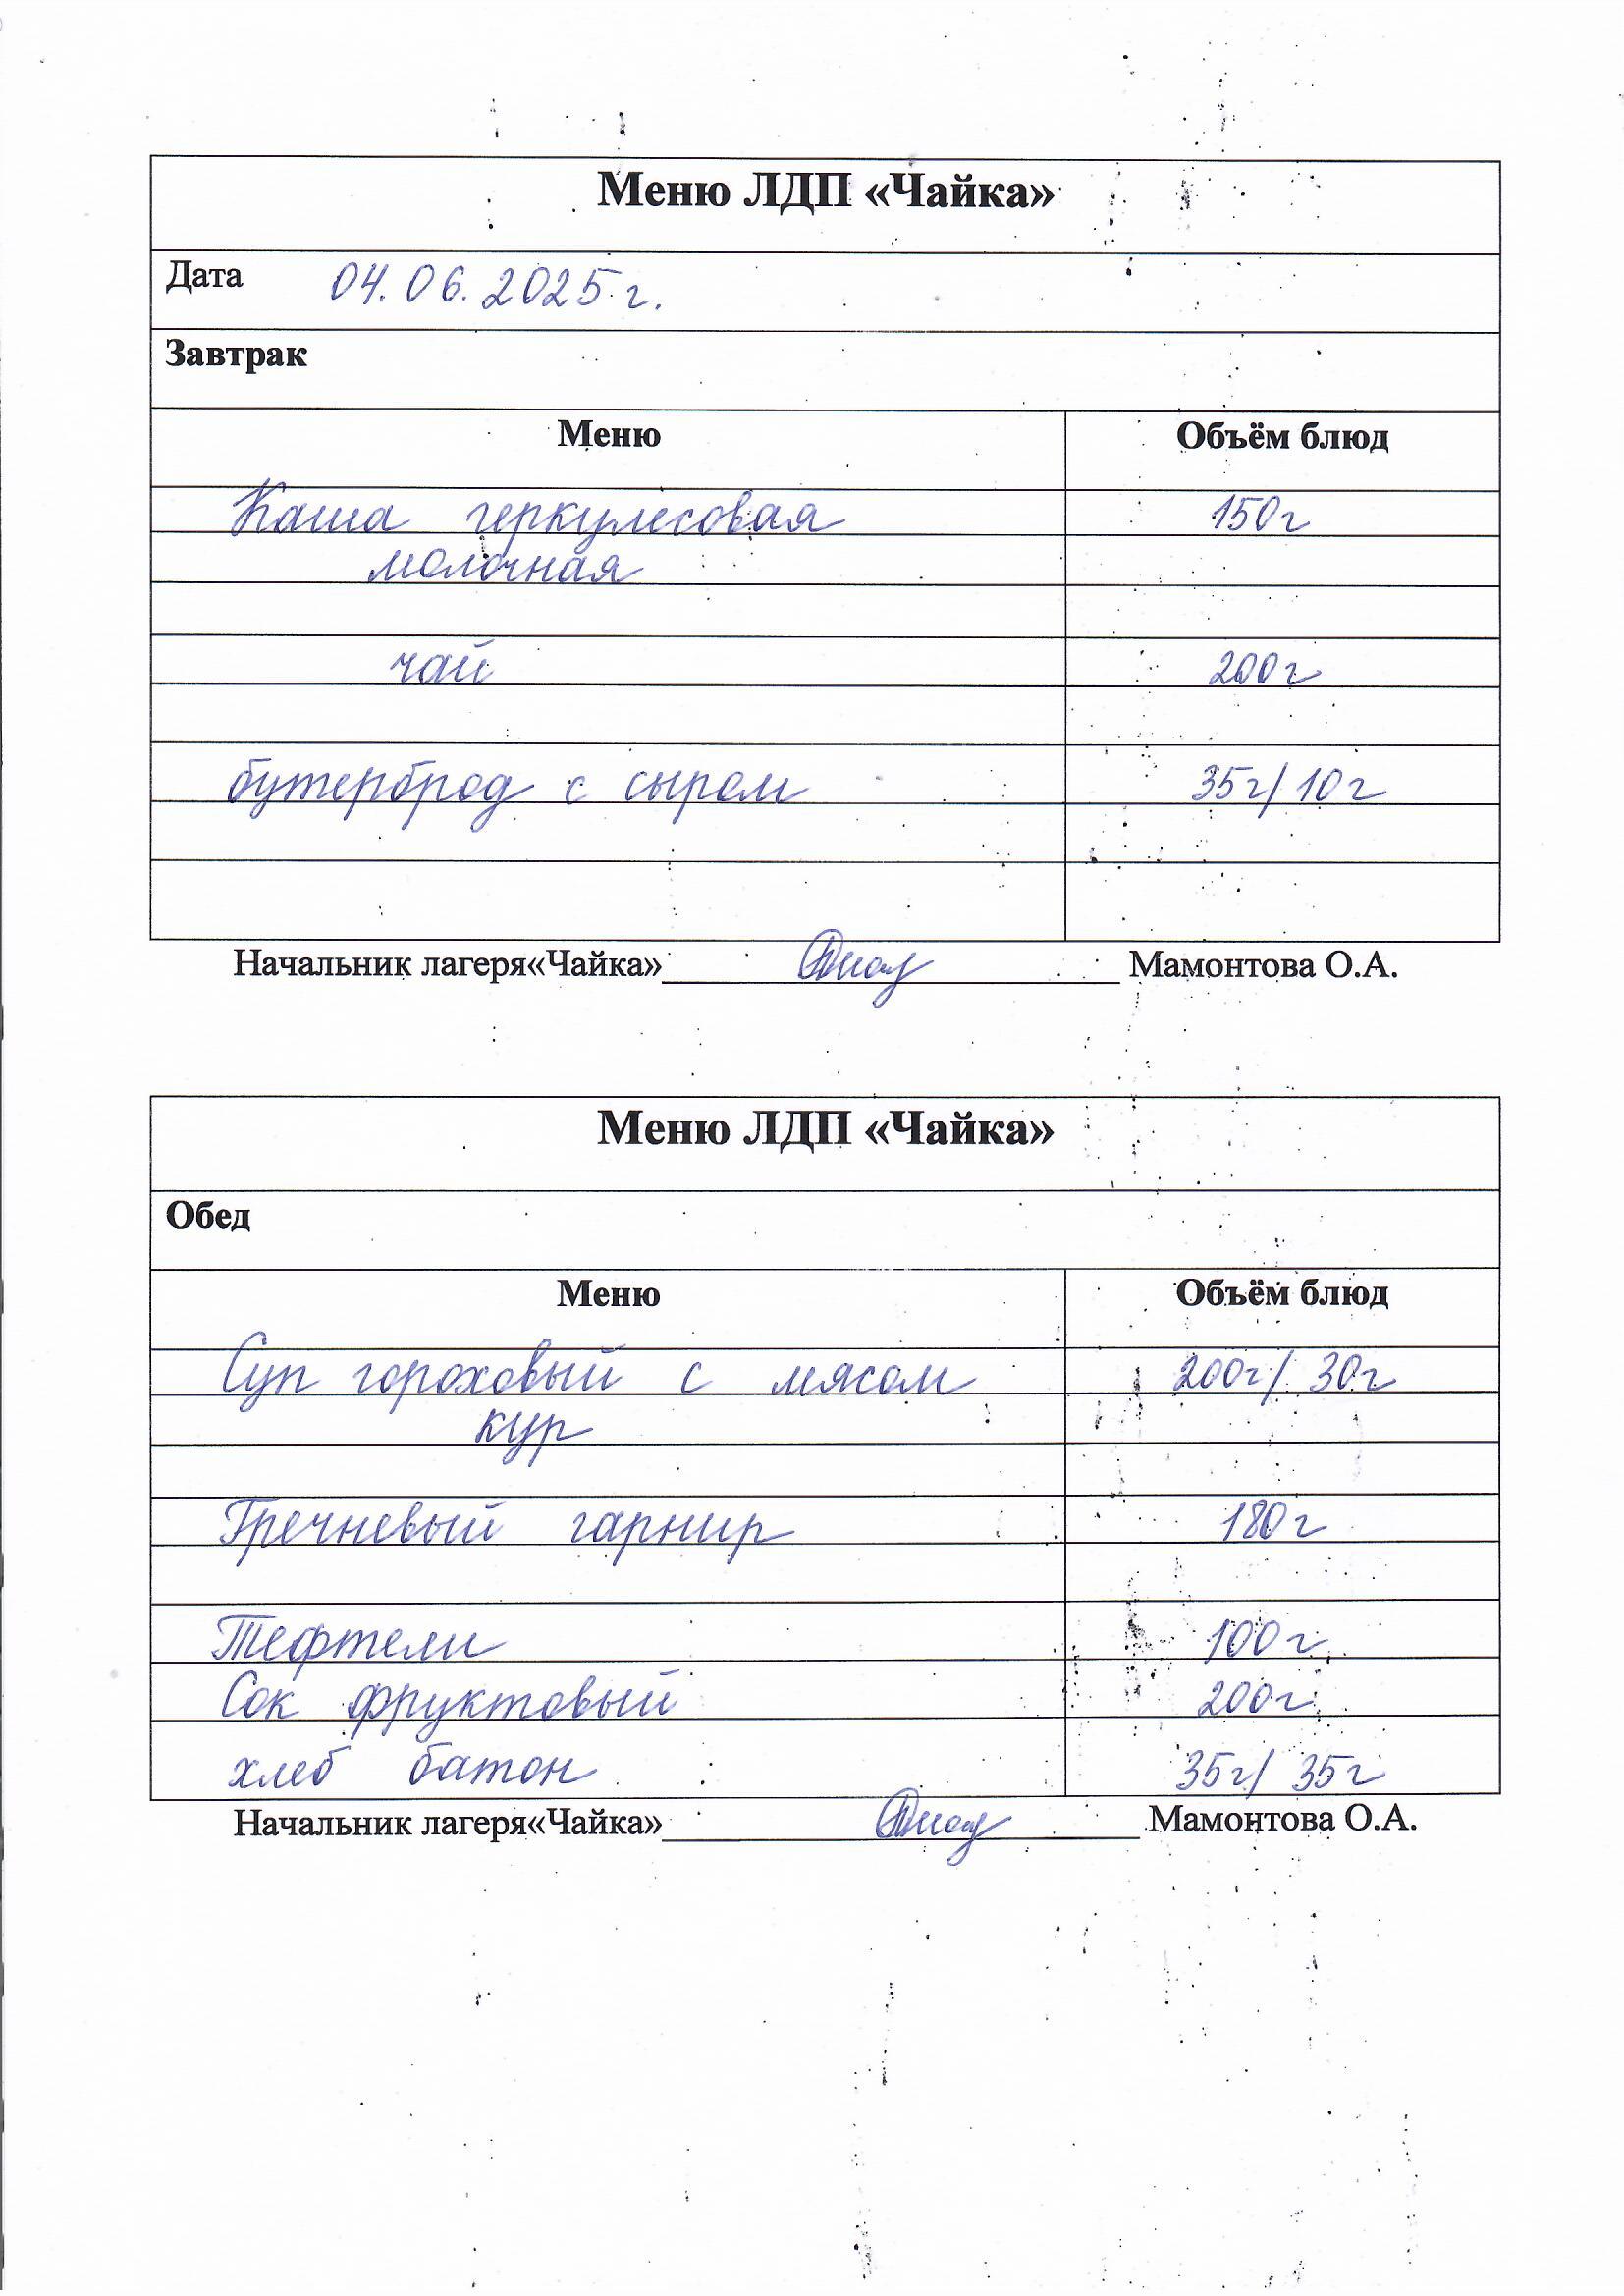 Меню ЛДП «Чайка»
Дата 04.06.2025 г.
Завтрак
Меню Объём блюд
Каша геркулесовая 150г
молочная
чай 200г
бутерброд с сыром 35г/ 10г
Начальник лагеря«Чайка» Мамонтова О.А.
Меню ЛДП «Чайка»
Обед
Меню Объём блюд
Суп гороховый с мясом 200г/ 30г
кур
Гречневый гарнир 180г
Тефтели 100г
Сок фруктовый 200г
хлеб батон 35г/ 35г
Начальник лагеря«Чайка» Мамонтова О.А.